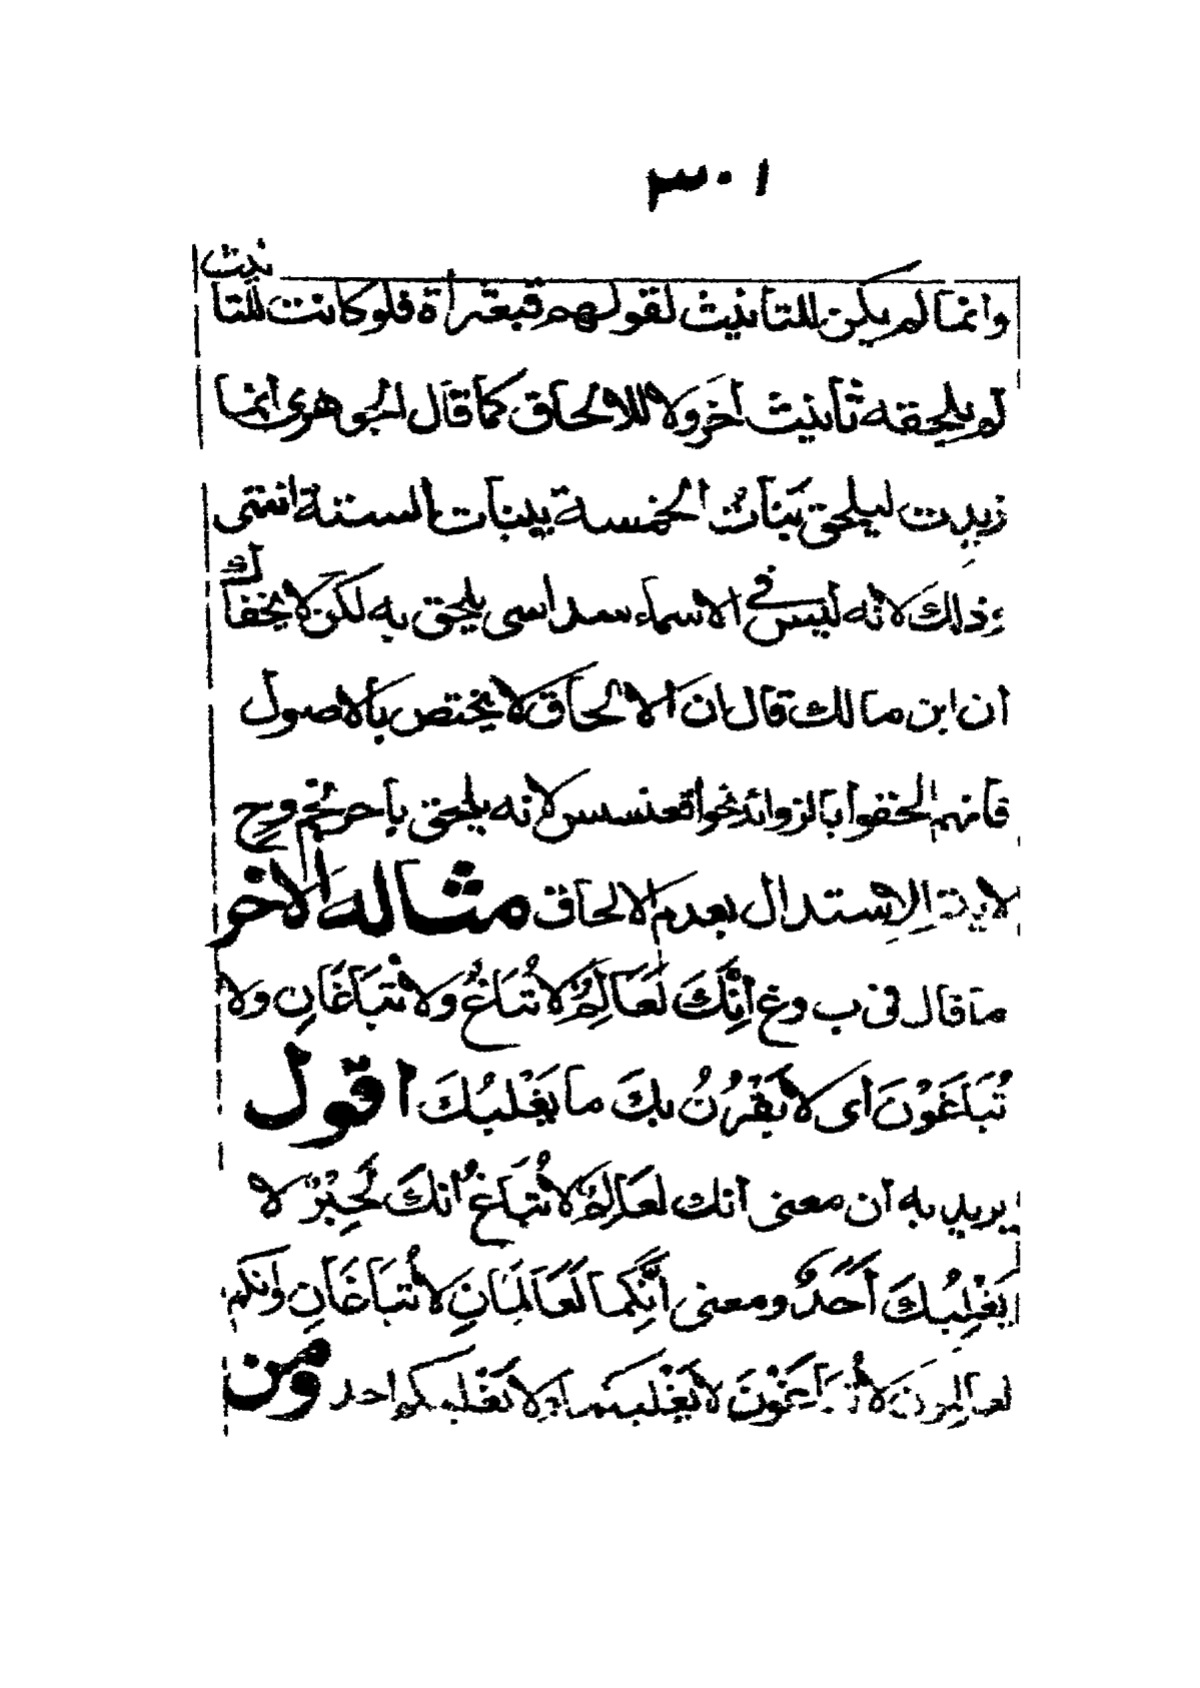 ٣٠١
وانما لم يكن للتانيث لقولهم قبعثراة فلو كانت للتانيث
لم يلحقه تأنيث آخر ولا للالحاق كما قال الجوهري انما
زيدت ليلحق بنات الخمسة ببنات الستة انتهى
وذلك لانه ليس في الاسماء سداسى يلحق به لكن لا يخفاك
ان ابن مالك قال ان الالحاق لا يختص بالاصول
فانهم الحقوا بالزوائد نحو اقعنسس لانه يلحق باحرنجم وح
لا يتم الاستدلال بعدم الالحاق مثاله الاخر
ما قال في ب وغ اِنَّكَ لَعَالِمٌ لا تُبَاغُ ولا تُبَاغَانِ ولا
تُبَاغَوْنَ اى لا يَقْرُنُ بِكَ ما يَغْلِبُكَ اقول
يريد به ان معنى انك لعالم لا تُبَاغُ انك لَحِبْرٌ لا
يَغْلِبُكَ اَحَدٌ ومعنى اِنَّكما لَعَالِمَانِ لا تُبَاغَانِ وانكم
لعالمونَ لا تُبَاغَوْنَ لا يَغْلبكما ولا يَغْلبكم احد ومن